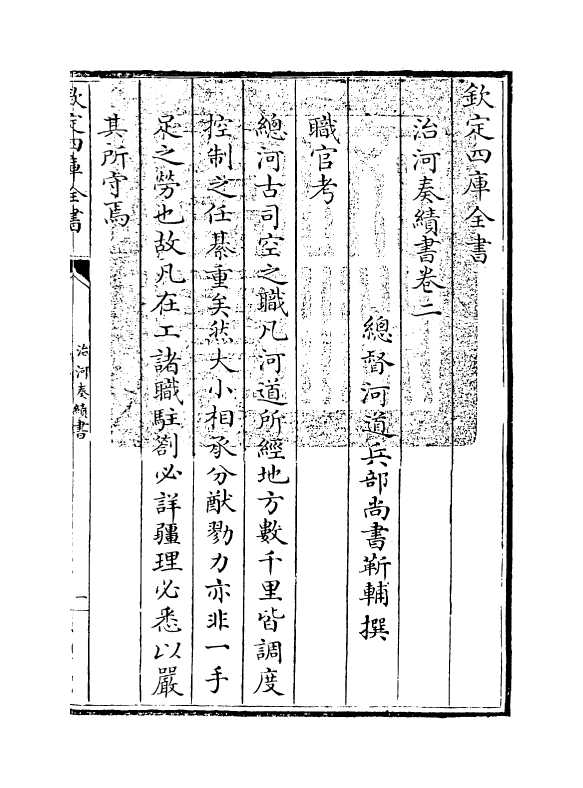 欽定四庫全書
治河奏績書卷二
總督河道兵部尚書靳輔撰
職官考
總河古司空之職凡河道所經地方數千里皆調度
控制之任綦重矣然大小相承分猷勠力亦非一手
足之勞也故凡在工諸職駐劄必詳疆理必悉以嚴
其所守焉
欽定四庫全書
治河奏績書
一